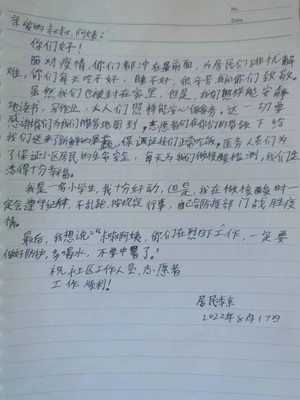 Date
亲爱的叔叔、阿姨:
你们好!
面对疫情,你们都冲在最前面,为居民们排忧解
难,你们每天吃不好、睡不好,很辛苦,我向你们致敬。
虽然我们也被封在家里,但是,我们照样能安静
地读书、写作业,大人们照样能安心做事。这一切要
感谢你们为我们服务地周到,志愿者们在你们的带领下给
我们送来了新鲜的蔬菜,保证让我们正常吃饭。医务人员们为
了保证小区居民的生命安全,每天为我们做核酸检测,我们生
活得十分幸福。
我是一名小学生,我十分好动,但是,我在做核酸时一
定会遵守纪律,不乱跑,按规定行事,配合防疫部门战胜疫
情。
最后,我想说:“叔叔阿姨,你们在烈日下工作,一定要
做好防护,多喝水,不要中暑了。”
祝社区工作人员、志愿者
工作顺利!
居民李京
2022年8月17日